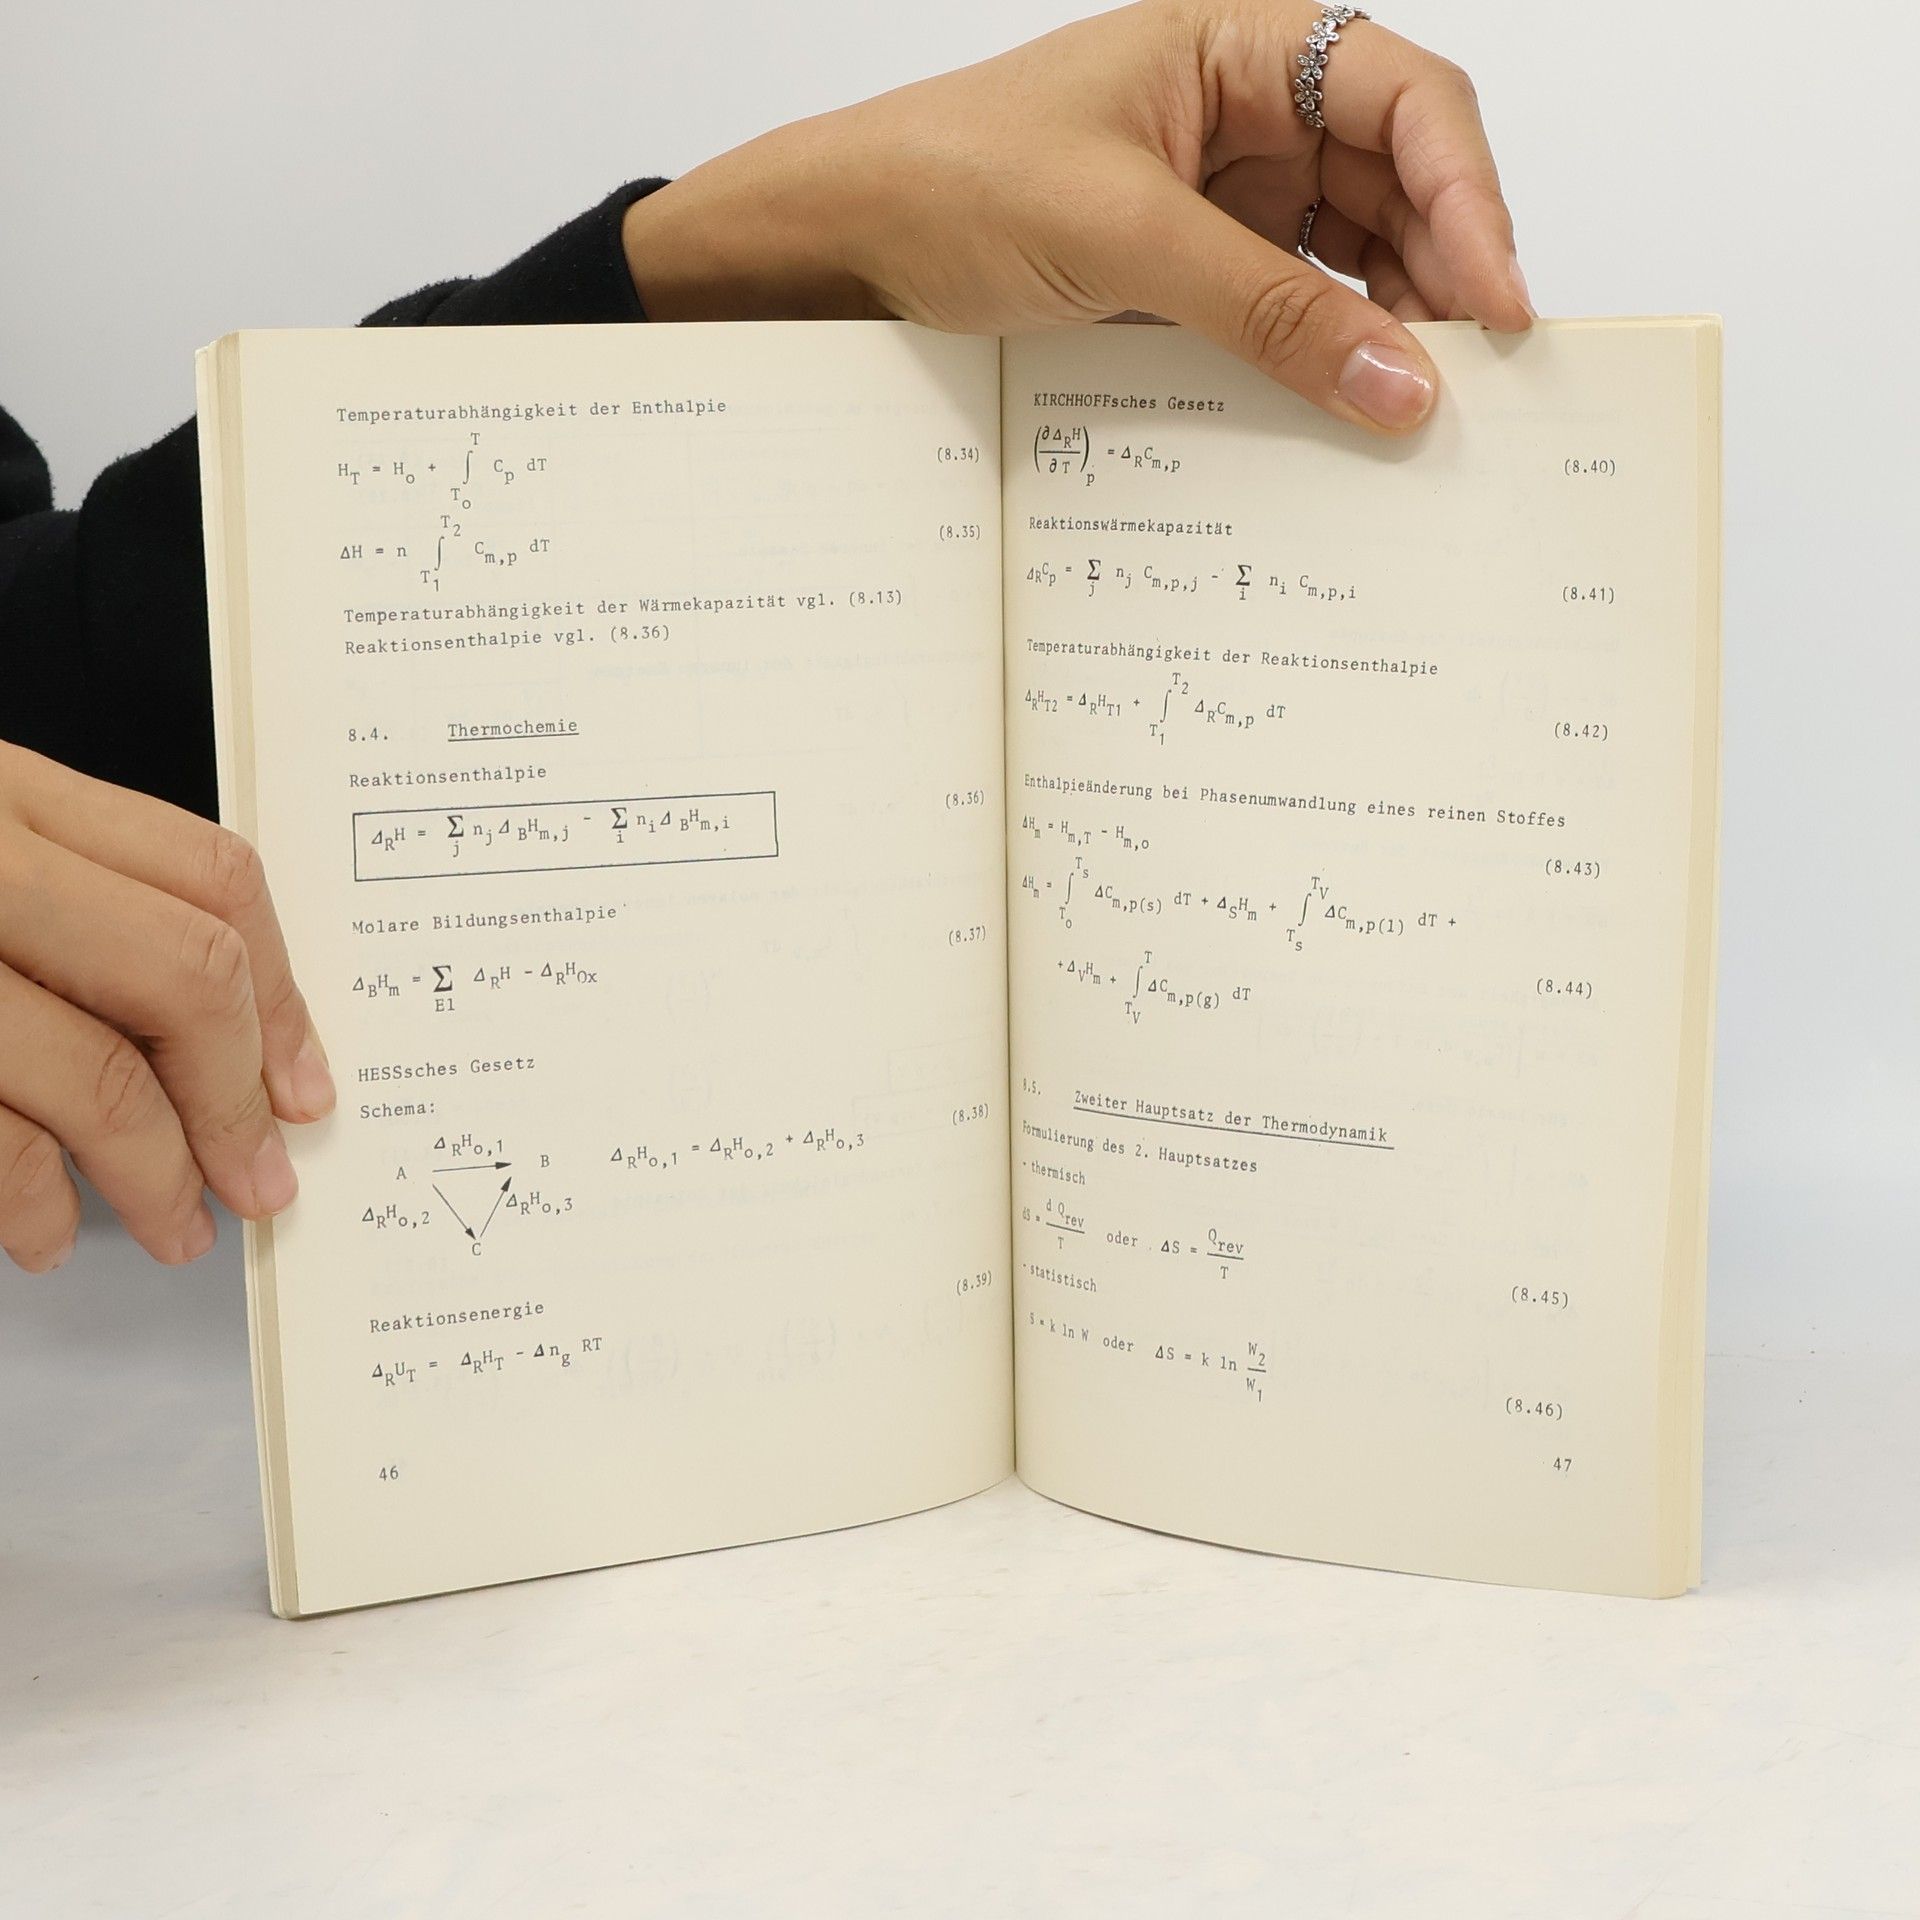 Temperaturabhängigkeit der Enthalpie
H_T = H_o + ∫_{T_o}^{T} C_p dT (8.34)
ΔH = n ∫_{T_1}^{T_2} C_{m,p} dT (8.35)
Temperaturabhängigkeit der Wärmekapazität vgl. (8.13)
Reaktionsenthalpie vgl. (8.36)
8.4. Thermochemie
Reaktionsenthalpie
Δ_R H = Σ_j n_j Δ_B H_{m,j} - Σ_i n_i Δ_B H_{m,i} (8.36)
Molare Bildungsenthalpie
Δ_B H_m = Σ_{El} Δ_R H - Δ_R H_{Ox} (8.37)
HESSsches Gesetz
Schema: (8.38)
Δ_R H_{o,1}
A B Δ_R H_{o,1} = Δ_R H_{o,2} + Δ_R H_{o,3}
Δ_R H_{o,2} Δ_R H_{o,3}
C
Reaktionsenergie (8.39)
Δ_R U_T = Δ_R H_T - Δn_g RT
46
KIRCHHOFFsches Gesetz
(∂Δ_R H / ∂T)_p = Δ_R C_{m,p} (8.40)
Reaktionswärmekapazität
Δ_R C_p = Σ_j n_j C_{m,p,j} - Σ_i n_i C_{m,p,i} (8.41)
Temperaturabhängigkeit der Reaktionsenthalpie
Δ_R H_{T2} = Δ_R H_{T1} + ∫_{T_1}^{T_2} Δ_R C_{m,p} dT (8.42)
Enthalpieänderung bei Phasenumwandlung eines reinen Stoffes
ΔH_m = H_{m,T} - H_{m,o} (8.43)
ΔH_m = ∫_{T_o}^{T_s} ΔC_{m,p(s)} dT + Δ_S H_m + ∫_{T_s}^{T_V} ΔC_{m,p(l)} dT +
+ Δ_V H_m + ∫_{T_V}^{T} ΔC_{m,p(g)} dT (8.44)
8.5. Zweiter Hauptsatz der Thermodynamik
Formulierung des 2. Hauptsatzes
- thermisch
dS = d Q_{rev} / T oder ΔS = Q_{rev} / T (8.45)
- statistisch
S = k ln W oder ΔS = k ln W_2 / W_1 (8.46)
47